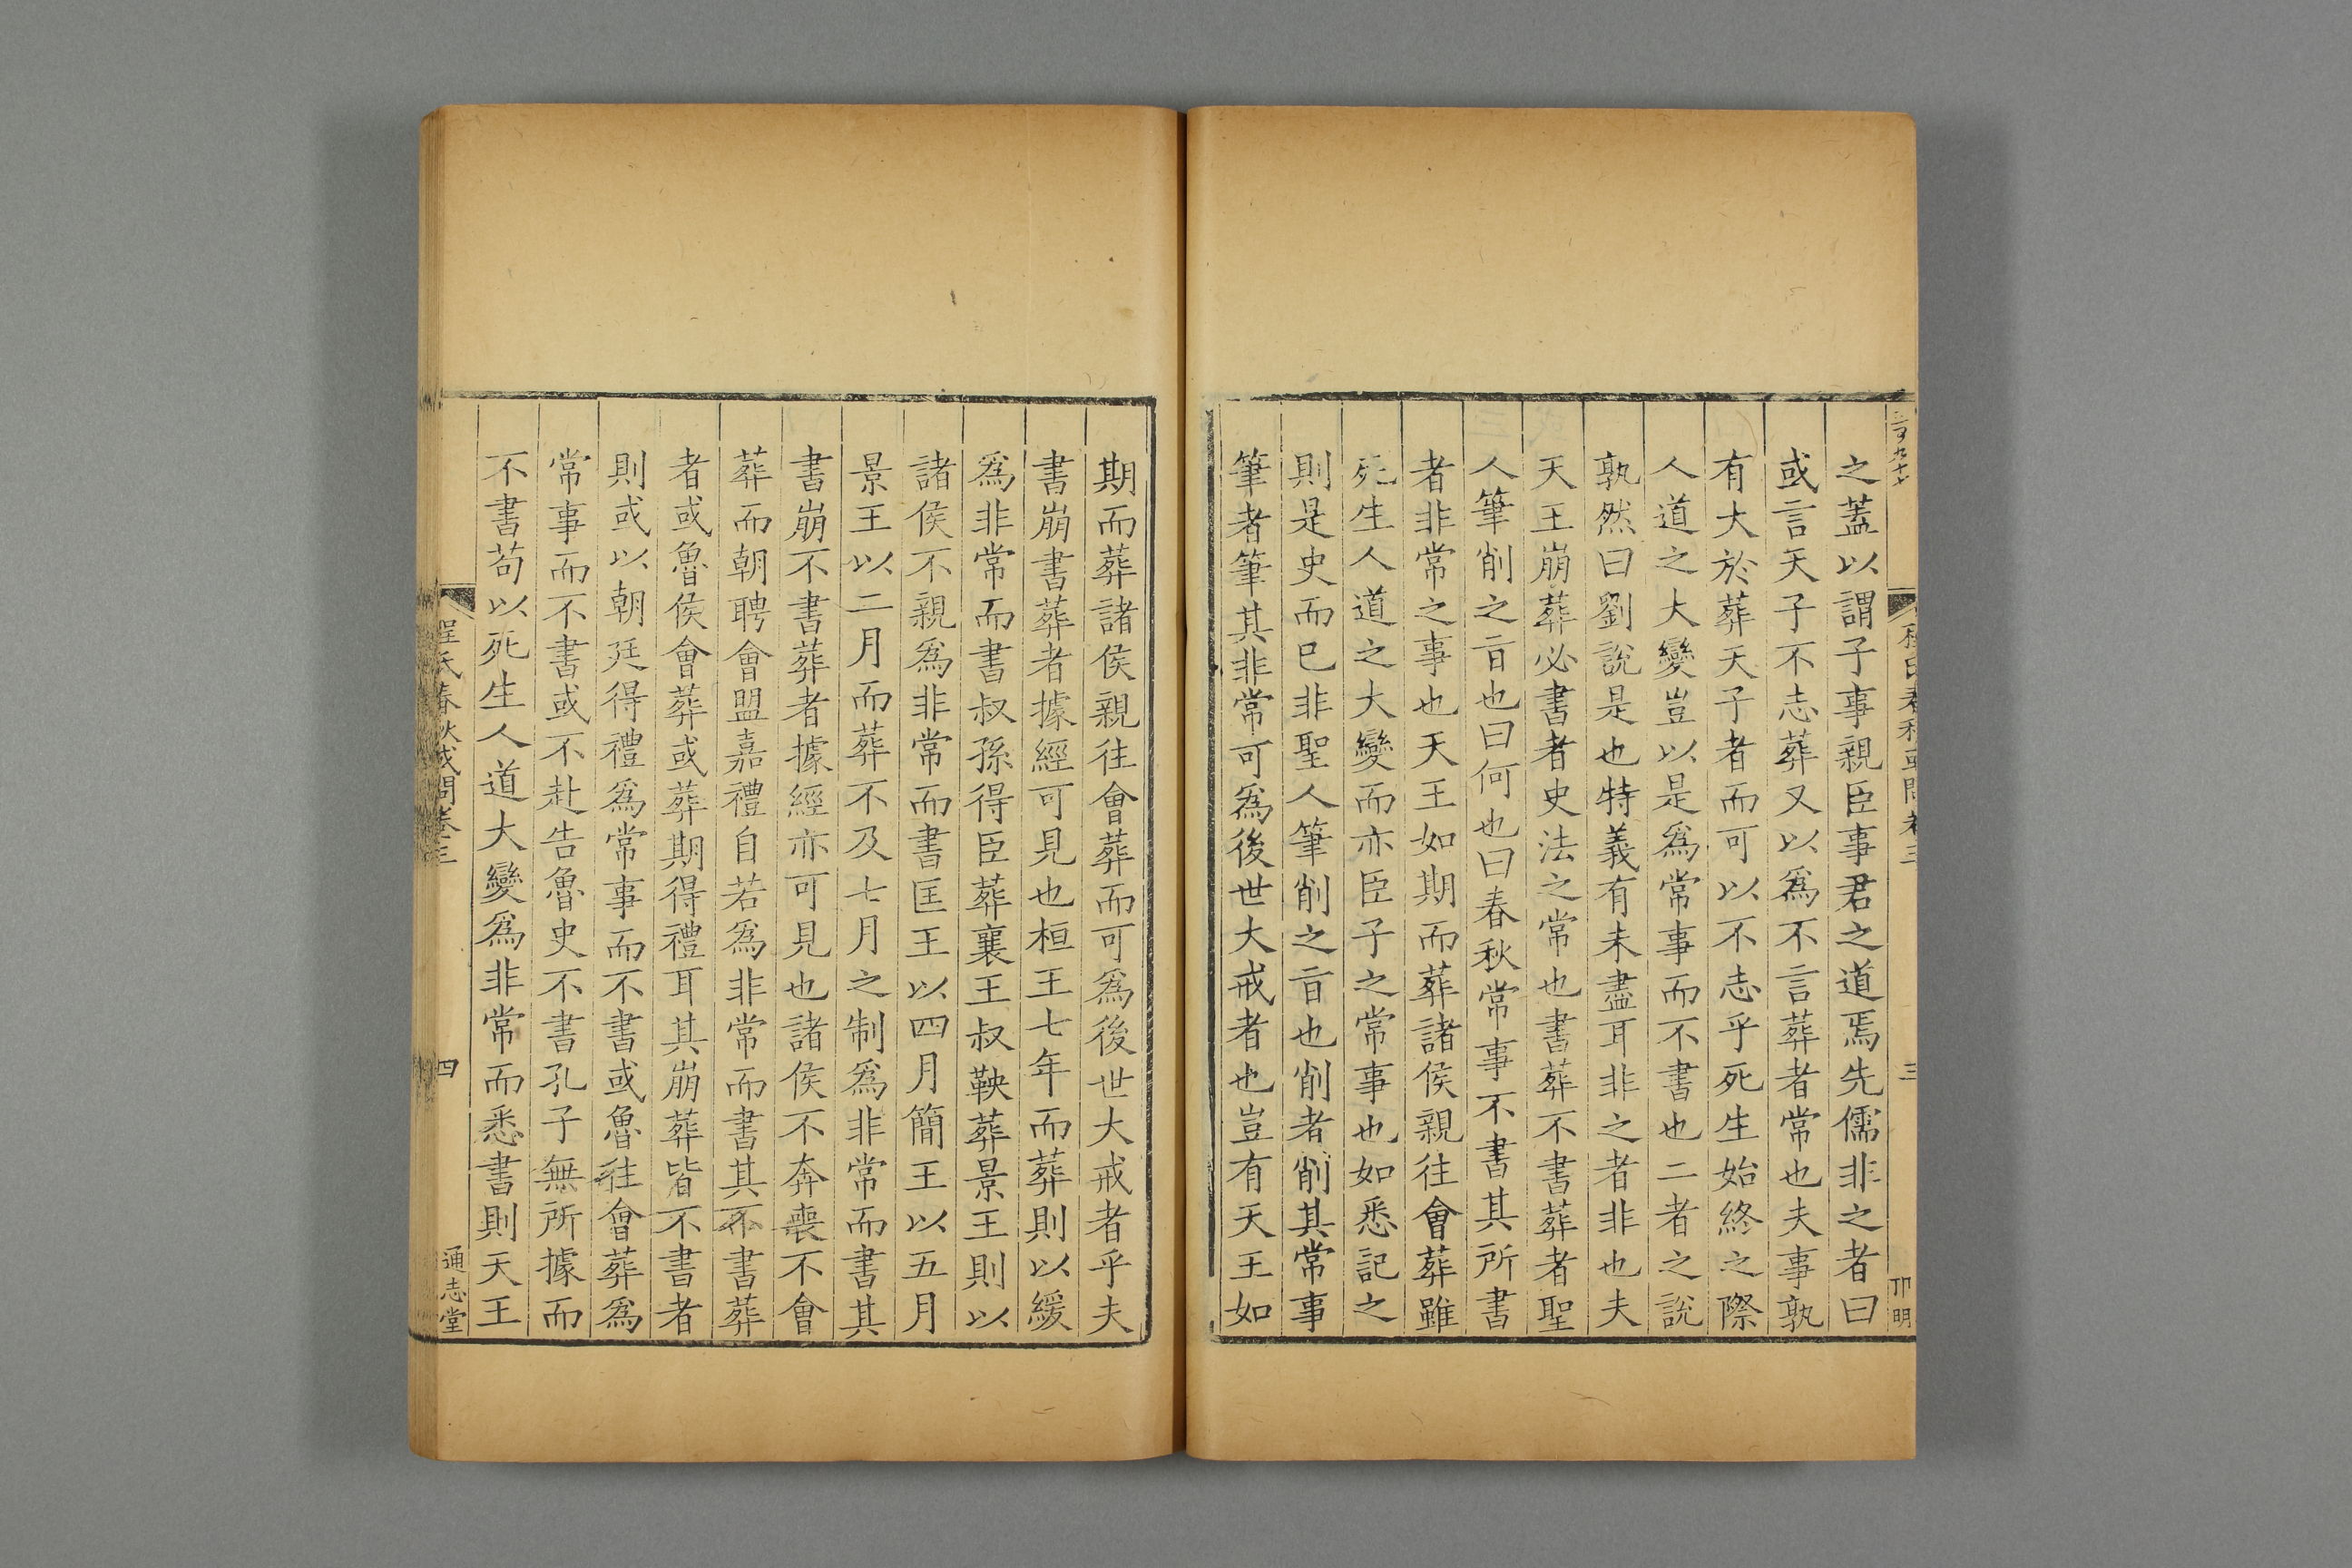 之蓋以謂子事親臣事君之道焉先儒非之者曰
或言天子不志葬又以爲不言葬者常也夫事孰
有大於葬天子者而可以不志乎死生始終之際
人道之大變豈以是爲常事而不書也二者之說
孰然曰劉說是也特義有未盡耳非之者非也夫
天王崩葬必書者史法之常也書葬不書葬者聖
人筆削之㫖也曰何也曰春秋常事不書其所書
者非常之事也天王如期而葬諸侯親往會葬雖
死生人道之大變而亦臣子之常事也如悉記之
則是史而已非聖人筆削之㫖也削者削其常事
筆者筆其非常可爲後世大戒者也豈有天王如
期而葬諸侯親往會葬而可爲後世大戒者乎夫
書崩書葬者據經可見也桓王七年而葬則以緩
爲非常而書叔孫得臣葬襄王叔鞅葬景王則以
諸侯不親爲非常而書匡王以四月簡王以五月
景王以二月而葬不及七月之制爲非常而書其
書崩不書葬者據經亦可見也諸侯不奔喪不會
葬而朝聘會盟嘉禮自若爲非常而書其不書葬
者或魯侯會葬或葬期得禮耳其崩葬皆不書者
則或以朝廷得禮爲常事而不書或魯往會葬爲
常事而不書或不赴告魯史不書孔子無所據而
不書苟以死生人道大變爲非常而悉書則天王
程氏春秋或問卷三
四
通志堂